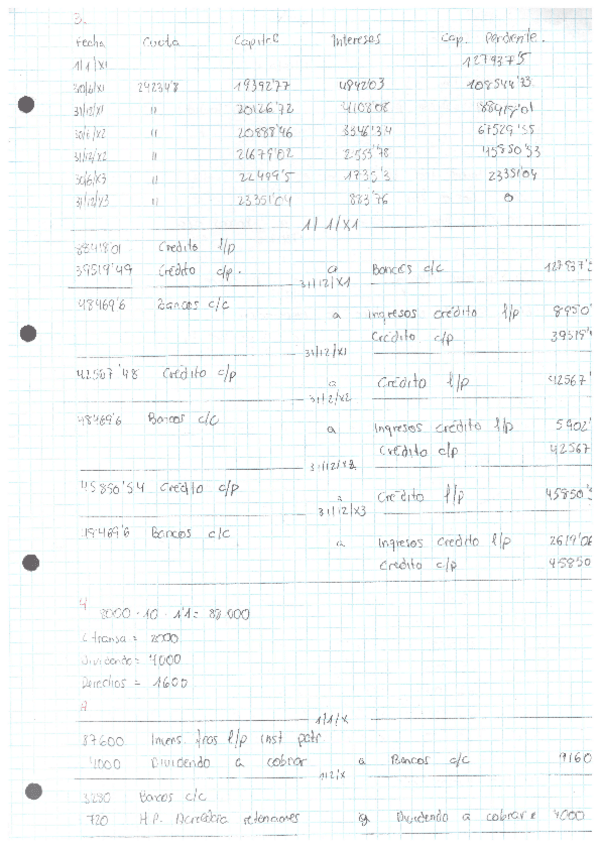 3.
Fecha Cuota Capital Intereses Cap. Pendiente.
1/1/X1 127937'5
30/6/X1 24234'8 19392'77 4842'03 108544'73
31/12/X1 " 20126'72 4108'08 88418'01
30/6/X2 " 20888'46 3346'34 67529'55
31/12/X2 " 21679'02 2555'78 45850'53
30/6/X3 " 22499'5 1735'3 23351'04
31/12/X3 " 23351'04 883'76 0
1/1/X1
88418'01 Crédito l/p
39519'49 Crédito c/p. a Bancos c/c 127937'5
31/12/X1
48469'6 Bancos c/c
a ingresos crédito l/p 8950'
Crédito c/p 39519'4
31/12/X1
42567'48 Crédito c/p a Crédito l/p 42567'
31/12/X2
48469'6 Bancos c/c a ingresos crédito l/p 5902'
Crédito c/p 42567
31/12/X2
45850'54 Crédito c/p a Crédito l/p 45850'5
31/12/X3
48469'6 Bancos c/c a Ingresos Crédito l/p 2619'06
Crédito c/p 45850
4
8000 · 10 · 1'1 = 88.000
C transa = 2000
Dividendo = 4000
Derechos = 1600
1/1/X
87600 Invers. fras l/p inst patr
4000 Dividendo a cobrar a Bancos c/c 9160
3280 Bancos c/c
720 H.P. Acreedora retenciones a Dividendo a cobrar 4000